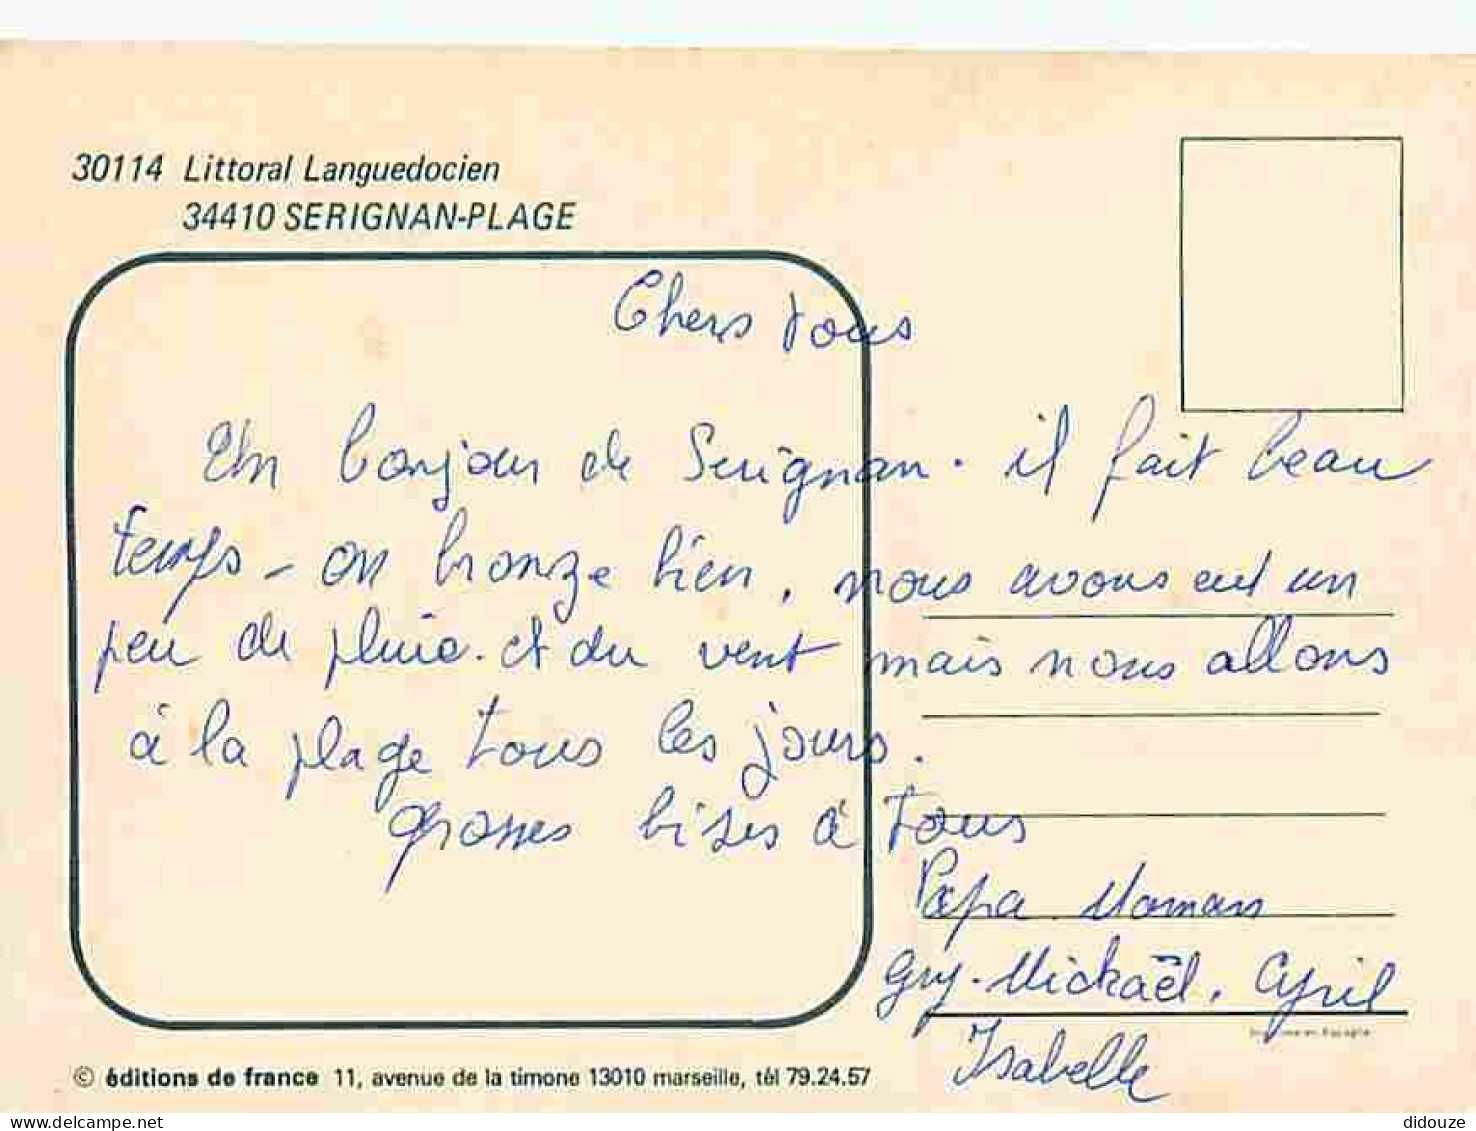 30114 Littoral Languedocien
34410 SERIGNAN-PLAGE
Chers tous
Un bonjour de Serignan. il fait beau
temps - on bronze bien, nous avons eut un
peu de pluie. et du vent mais nous allons
à la plage tous les jours.
grosses bises à tous
Papa Maman
Guy. Mickaël. Cyril
Isabelle
© éditions de france 11, avenue de la timone 13010 marseille, tél 79.24.57
delcampe.net
didouze